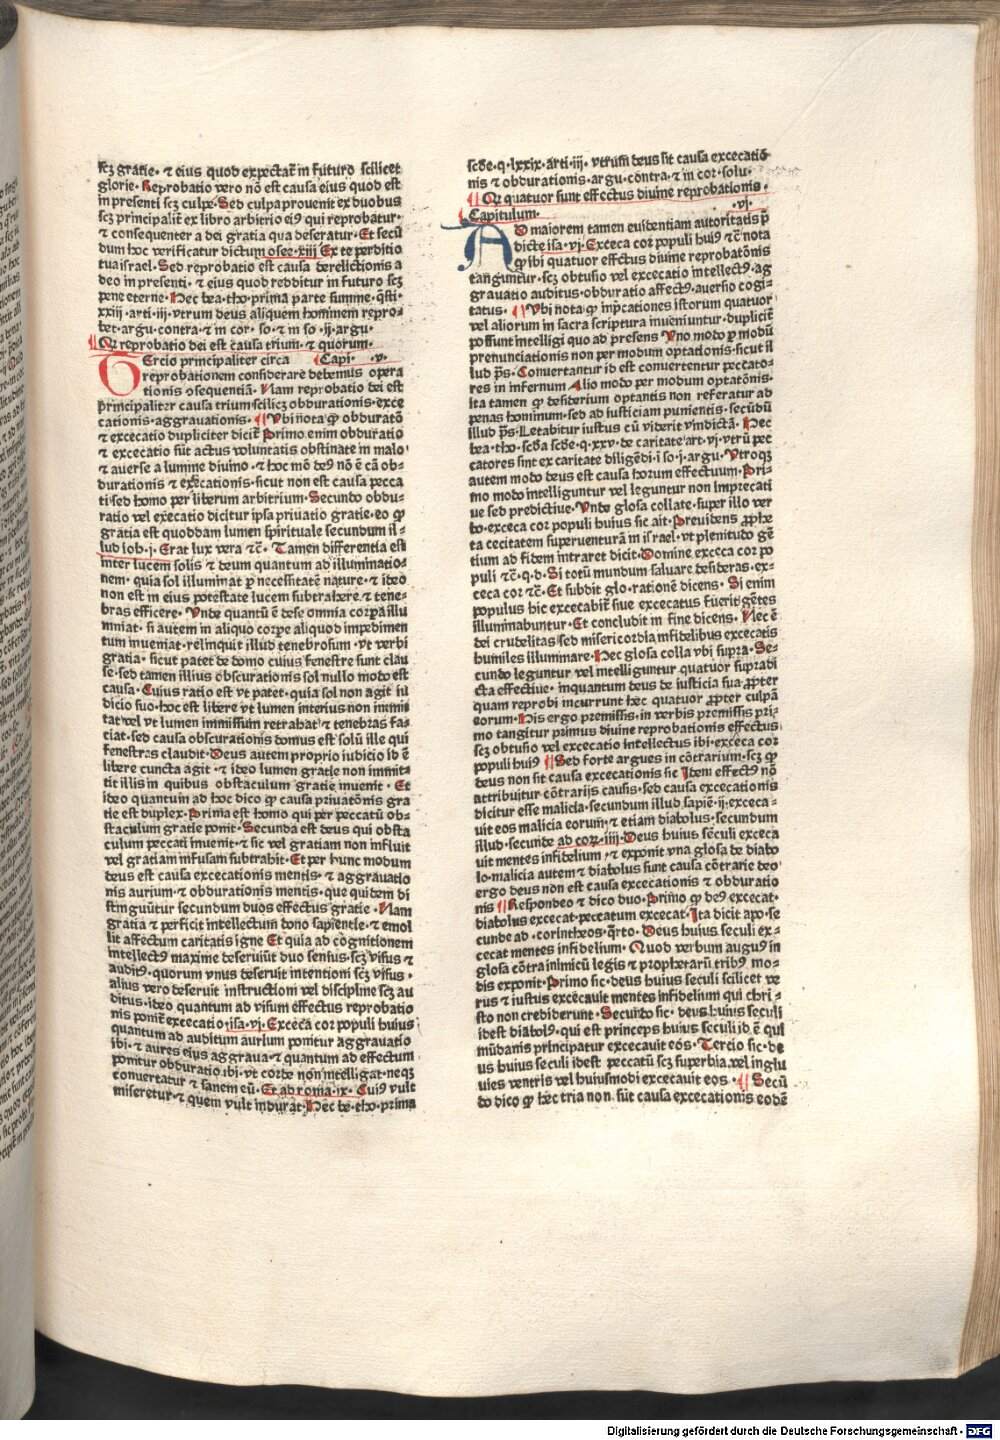 scꝫ gratie· ⁊ eius quod expectat̄ in futuro scilicet
glorie· Reprobatio vero nō est causa eius quod est
in presenti scꝫ culpe· Sed culpa prouenit ex duobus
scꝫ principalit̄ ex libro arbitrio eiꝰ qui reprobatur·
⁊ consequenter a dei gratia qua deseratur· Et secū
dum hoc verificatur dictum osee·xiii Ex te perditio
tua israel· Sed reprobatio est causa derelictionis a
deo in presenti· ⁊ eius quod redditur in futuro scꝫ
pene eterne· Hec bea·tho·prima parte summe·q̄sti·
xxiii·arti·iij·vtrum deus aliquem hominem repro-
bet·argu·contra·⁊ in cor·so·⁊ in so·ij·argu·
Qꝛ reprobatio dei est causa trium·⁊ quorum·
Capi· ·v·
TErcio principaliter circa
reprobationem considerare debemus opera
tionis ↄsequentiā· Nam reprobatio dei est
principaliter causa trium scilicꝫ obdurationis·exce
cationis·aggrauationis· Vbi nota ꝙ obduratō
⁊ excecatio dupliciter dicit̄ Primo enim obduratio
⁊ excecatio sūt actus voluntatis obstinate in malo
⁊ auerse a lumine diuino·⁊ hoc mō deꝰ nō ē cā ob-
durationis ⁊ execationis·sicut non est causa pecca
ti·sed homo per liberum arbitrium· Secundo obdu-
ratio vel execatio dicitur ipsa priuatio gratie·eo ꝙ
gratia est quoddam lumen spirituale secundum il-
lud iob·j·Erat lux vera ⁊c̄· Tamen differentia est
inter lucem solis ⁊ deum quantum ad illuminatio-
nem·quia sol illuminat p̄ necessitatē nature·⁊ ideo
non est in eius potestate lucem subtrahere·⁊ tene-
bras efficere· Vnde quantū ē de se omnia corpa illu
minat· si autem in aliquo corpe aliquod impedimen
tum inueniat·relinquit illud tenebrosum·vt verbi
gratia· sicut patet de domo cuius fenestre sunt clau
se·sed tamen illius obscurationis sol nullo modo est
causa· Cuius ratio est vt patet·quia sol non agit iu
dicio suo·hoc est libere vt lumen interius non immit
tat vel vt lumen immissum retrahat·⁊ tenebras fa-
ciat·sed causa obscurationis domus est solū ille qui
fenestras claudit· Deus autem proprio iudicio id ē
libere cuncta agit·⁊ ideo lumen gratie non immit-
tit illis in quibus obstaculum gratie inuenit· Et
ideo quantum ad hoc dico ꝙ causa priuatōnis gra
tie est duplex· Prima est homo qui per peccatū ob-
staculum gratie ponit· Secunda est deus qui obsta
culum peccati inuenit·⁊ sic vel gratiam non influit
vel gratiam infusam subtrahit· Et per hunc modum
deus est causa excecationis mentis·⁊ aggrauatio
nis aurium·⁊ obdurationis mentis·que quidem di
stinguūtur secundum duos effectus gratie· Nam
gratia ⁊ perficit intellectum dono sapientie·⁊ emol
lit affectum caritatis igne Et quia ad cognitionem
intellectꝰ maxime deseruiūt duo sensus·scꝫ visus ⁊
auditꝰ·quorum vnus deseruit intentioni scꝫ visus·
alius vero deseruit instructioni vel discipline scꝫ au
ditus·ideo quantum ad visum effectus reprobatio
nis ponit̄ excecatio·isa·vj·Excecā cor populi huius
quantum ad auditum aurium ponitur aggrauatio
ibi·⁊ aures eius aggraua·⁊ quantum ad effectum
ponitur obduratio ibi·vt corde non intelligat·neqꝫ
conuertatur ⁊ sanem eū· Et ad roma·ix· Cuiꝰ vult
miseretur·⁊ quem vult indurat· Hec be·tho·prima
scd̄e·q·lxxix·arti·iij·vtrum deus sit causa excecatiō
nis ⁊ obdurationis·argu·contra·⁊ in cor·solu·
Qꝛ quatuor sunt effectus diuine reprobationis·
Capitulum· ·vj·
AD maiorem tamen euidentiam autoritatis p̄
dicte isa·vj·Exceca cor populi huiꝰ ⁊c̄ nota
ꝙ ibi quatuor effctus diuine reprobatōnis
tanguntur·scꝫ obtusio vel excecatio intellectꝰ·ag
grauatio auditus·obduratio affectꝰ·auersio cogi-
tatus· Vbi nota ꝙ imp̄cationes istorum quatuor
vel aliorum in sacra scriptura inueniuntur·duplicit̄
possunt intelligi quo ad presens Vno modo p̄ modū
prenunciationis non per modum optationis·sicut il
lud p̄s· Conuertantur id est conuertentur peccato-
res in infernum Alio modo per modum optatōnis·
ita tamen ꝙ desiderium optantis non referatur ad
penas hominum·sed ad iusticiam punientis·secūdū
illud p̄s·Letabitur iustus cū viderit vindictā· Hec
bea·tho·scd̄a scd̄e·q·xxv·de caritate·art·vj·vtrū pec
catores sint ex caritate diligēdi·i so·j·argu· Vtroqꝫ
autem modo deus est causa horum effectuum· Pri-
mo modo intelliguntur vel leguntur non imprecati
ue sed predictiue· Vnde glosa collate·super illo ver
bo·exceca cor populi huius sic ait·Preuidens ꝓphe
ta cecitatem superuenturā in israel·vt plenitudo gē
tium ad fidem intraret dicit· Domine exceca cor po
puli ⁊c̄·q·d·Si totū mundum saluare desideras·ex-
ceca cor ⁊c̄· Et subdit glo·rationē dicens· Si enim
populus hic excecabit̄ siue excecatus fuerit gētes
illuminabuntur· Et concludit in fine dicens· Nec ē
dei crudelitas sed misericordia infidelibus excecatis
humiles illuminare· Hec glosa colla vbi supra· Se-
cundo leguntur vel intelliguntur quatuor supradi
cta effectiue· inquantum deus de iusticia sua ꝓpter
quam reprobi incurrunt hec quatuor ꝓpter culpā
eorum· His ergo premissis·in verbis premissis pri-
mo tangitur primus diuine reprobationis effectus
scꝫ obtusio vel excecatio intellectus ibi·exceca cor
populi huiꝰ Sed forte argues in cōtrarium·scꝫ ꝙ
deus non sit causa excecationis sic Idem effectꝰ nō
attribuitur cōtrarijs causis·sed causa excecationis
dicitur esse malicia·secundum illud sapiē·ij·exceca-
uit eos malicia eorum·⁊ etiam diabolus·secundum
illud·secunde ad coꝝ·iiij·Deus huius sēculi exceca
uit mentes infidelium·⁊ exponit vna glosa de diabo
lo·malicia autem ⁊ diabolus sunt causa cōtrarie deo
ergo deus non est causa excecationis ⁊ obduratio
nis Respondeo ⁊ dico duo· Primo ꝙ deꝰ excecat·
diabolus excecat·peccatum excecat· Ita dicit apo·se
cunde ad·corintheos·q̄rto·Deus huius seculi ex-
cecat mentes infidelium· Quod verbum augusꝰ in
glosa cōtra inimicū legis ⁊ prophetarū tribꝰ mo-
dis exponit· Primo sic·deus huius seculi scilicet ve
rus ⁊ iustus excēcauit mentes infidelium qui chri-
sto non crediderunt· Secundo sic·deus huius seculi
idest diabolꝰ·qui est princeps huius seculi id ē qui
mūdanis principatur excecauit eos· Tercio sic·de
us huius seculi idest peccatū scꝫ superbia·vel inglu
uies ventris vel huiusmodi excecauit eos· Secū
do dico ꝙ hec tria non sūt causa excecationis eodē
Digitalisierung gefördert durch die Deutsche Forschungsgemeinschaft - DFG